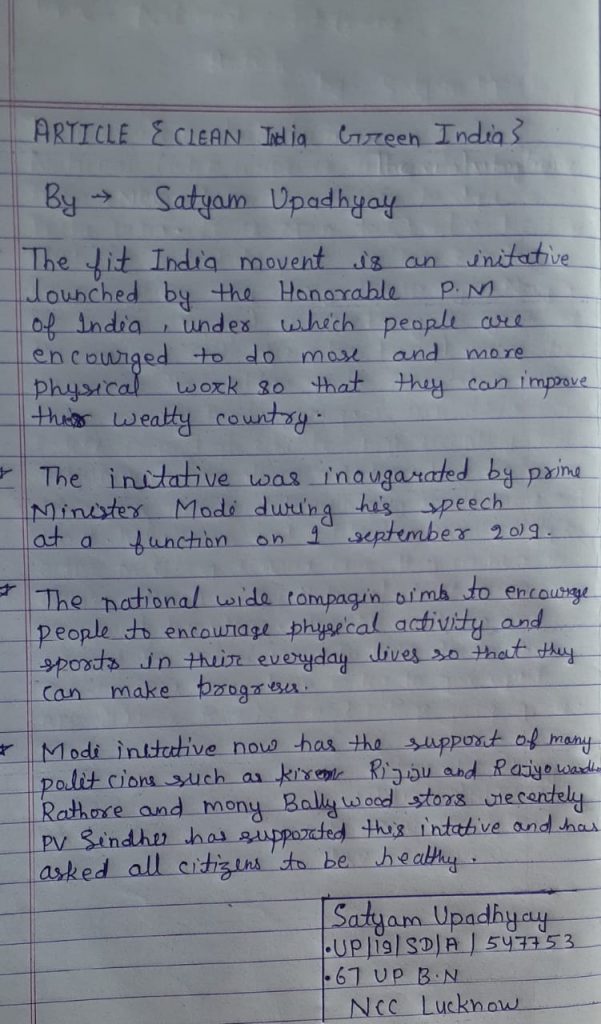 ARTICLE { CLEAN India Green India }
By → Satyam Upadhyay
The fit India movent is an initative
lounched by the Honorable P.M
of India , under which people are
encourged to do more and more
physical work so that they can improve
their wealty country.
* The initative was inaugarated by prime
Minister Modi during he's speech
at a function on 1 september 2019.
* The national wide compagin aims to encourage
people to encourage physical activity and
sports in their everyday lives so that they
can make progress.
* Modi initative now has the support of many
polit cions such as kiren Rijiju and
Rathore and mony Bollywood stors recentely
PV Sindher has supporated this intative and has
asked all citizens to be healthy.
Satyam Upadhyay
• UP/19/SD/A/547753
• 67 UP B.N
NCC Lucknow